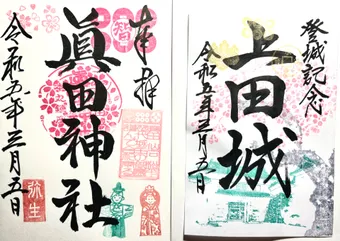 奉拝
眞田神社
令和五年三月五日
弥生
登城記念
上田城
令和五年三月五日